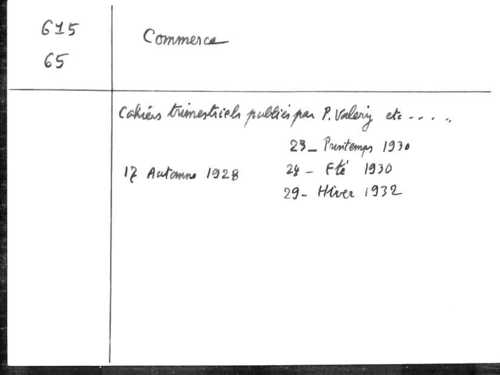 615
65
Commerce
Cahiers trimestriels publiés par P. Valery etc.....
23_ Printemps 1930
17 Automne 1928
24 - Eté 1930
29 - Hiver 1932